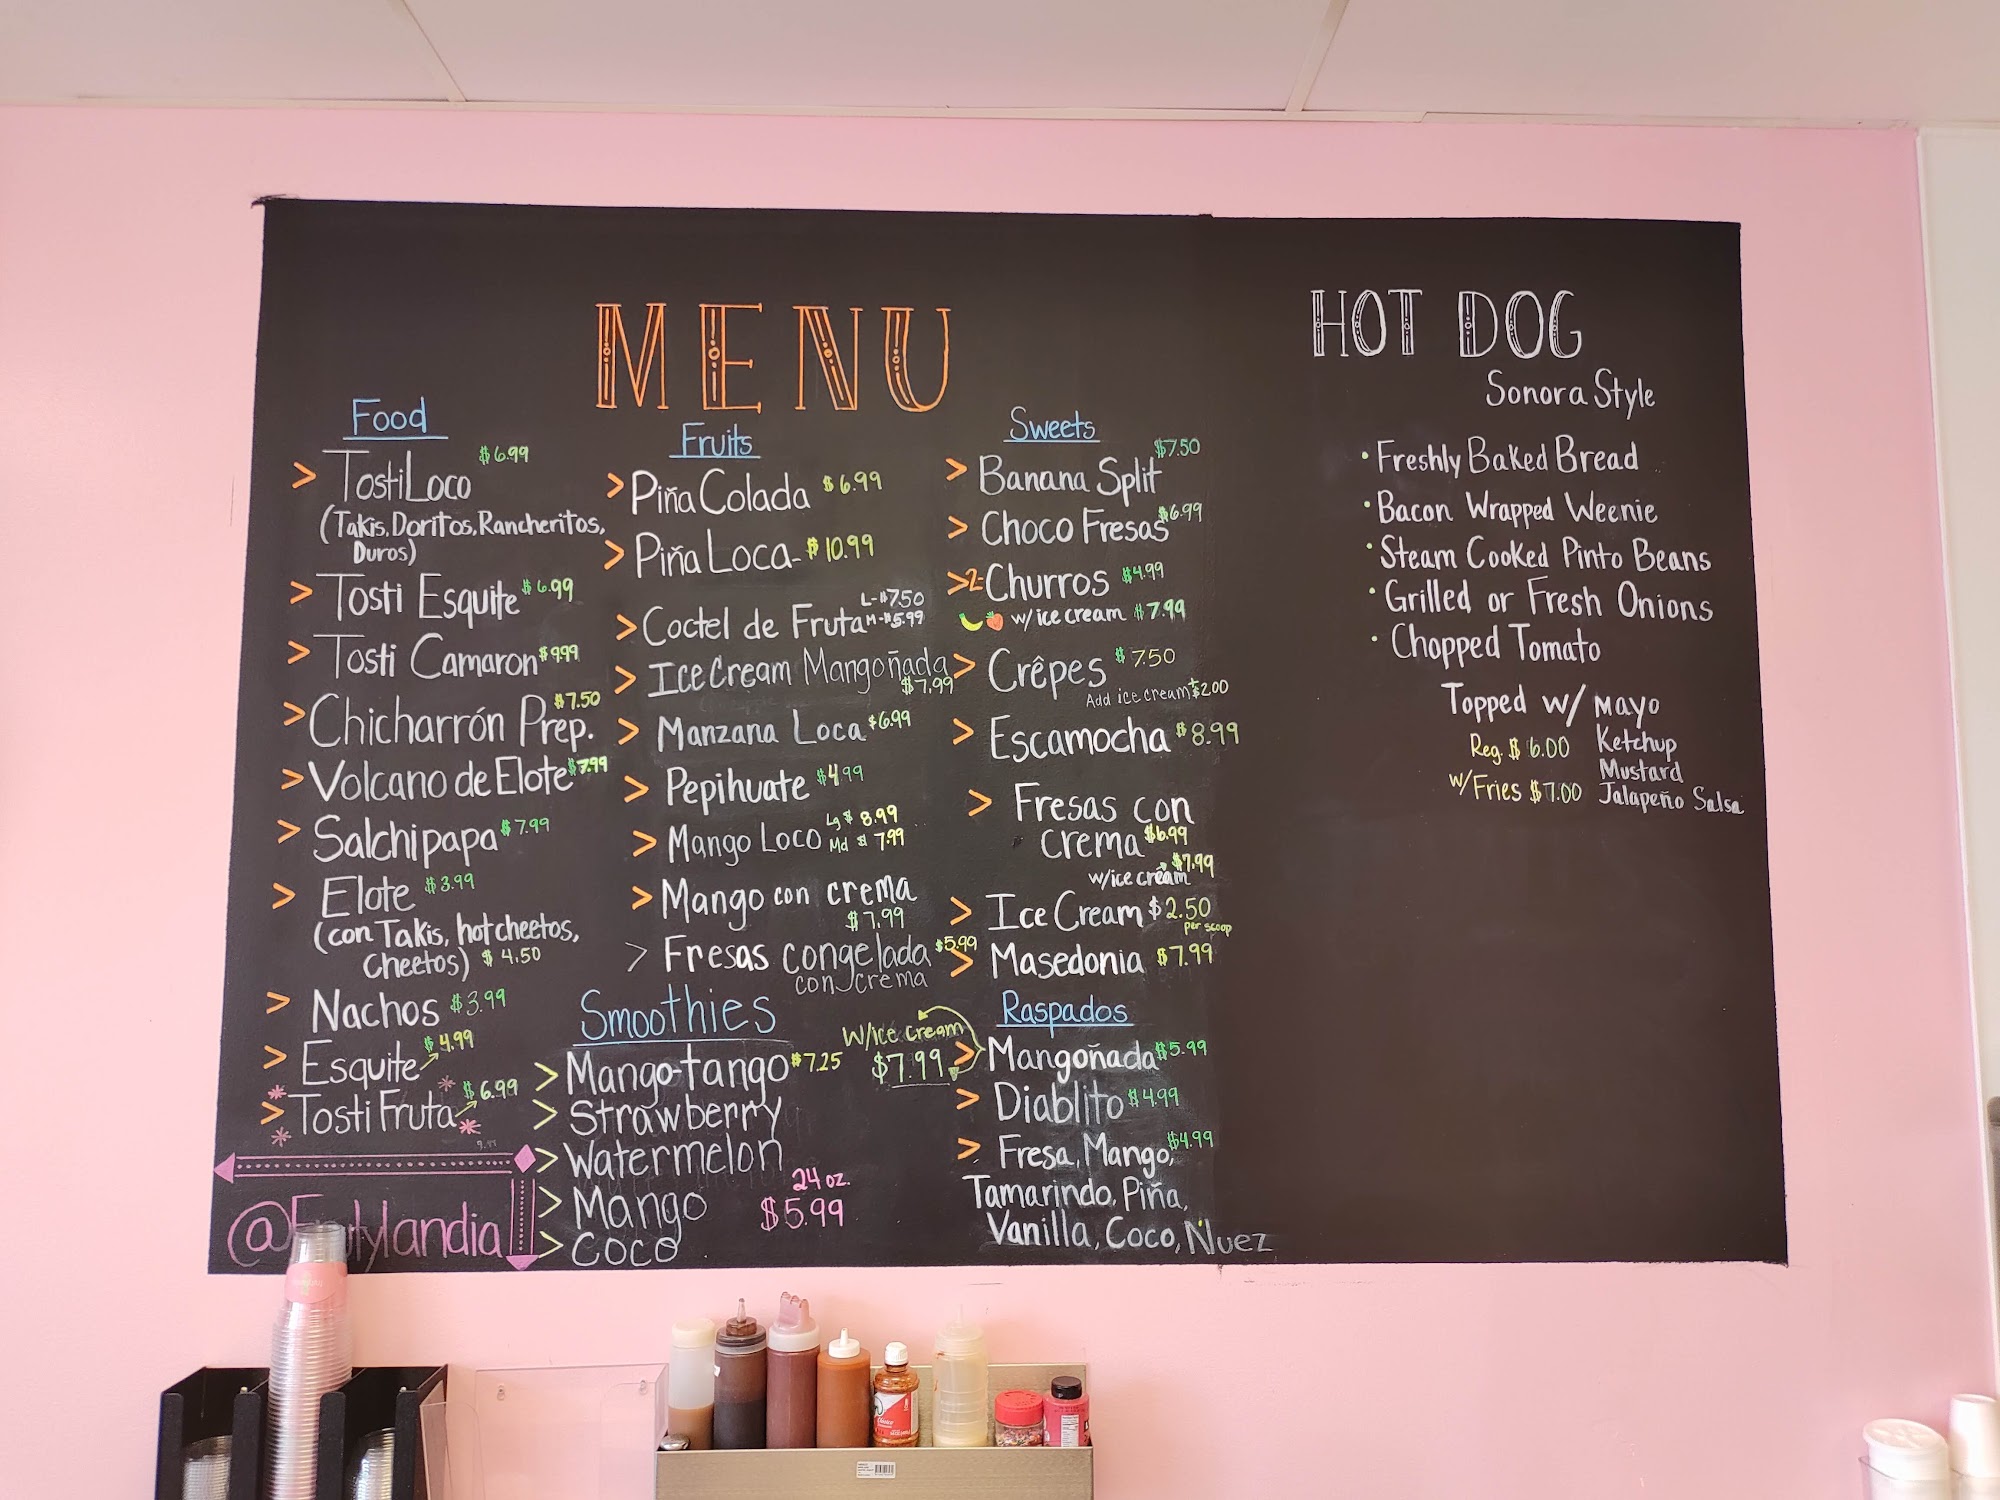 MENU
Food
TostiLoco $6.99
(Takis, Doritos, Rancheritos,
Duros)
Tosti Esquite $6.99
Tosti Camaron $9.99
Chicharrón Prep. $7.50
Volcano de Elote $7.99
Salchipapa $7.99
Elote $3.99
(con Takis, hot cheetos,
Cheetos) $4.50
Nachos $3.99
Esquite $4.99
Tosti Fruta $6.99
Fruits
Piña Colada $6.99
Piña Loca - $10.99
Coctel de Fruta L-$7.50
M-$5.99
Ice Cream Mangoñada
$7.99
Manzana Loca $6.99
Pepihuate $4.99
Mango Loco Lg $8.99
Md $7.99
Mango con crema
$7.99
Fresas congelada $5.99
con crema
Smoothies
Mango-tango $7.25
Strawberry
Watermelon
Mango
Coco
24 oz.
$5.99
Sweets
Banana Split $7.50
Choco Fresas $6.99
2-Churros $4.99
w/ice cream $7.99
Crêpes $7.50
Add ice cream +$2.00
Escamocha $8.99
Fresas con
crema $6.99
w/ice cream $7.99
Ice Cream $2.50
per scoop
Masedonia $7.99
Raspados
Mangoñada $5.99
w/ice cream
$7.99
Diablito $4.99
Fresa, Mango, $4.99
Tamarindo, Piña,
Vanilla, Coco, Nuez
HOT DOG
Sonora Style
• Freshly Baked Bread
• Bacon Wrapped Weenie
• Steam Cooked Pinto Beans
• Grilled or Fresh Onions
• Chopped Tomato
Topped w/ Mayo
Ketchup
Mustard
Jalapeño Salsa
Reg. $6.00
w/Fries $7.00